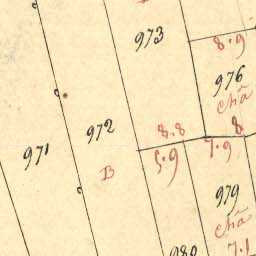 973
8.9
976
châ
971
972
8.8
8
B
5.9
7.9
979
châ
980
7.1